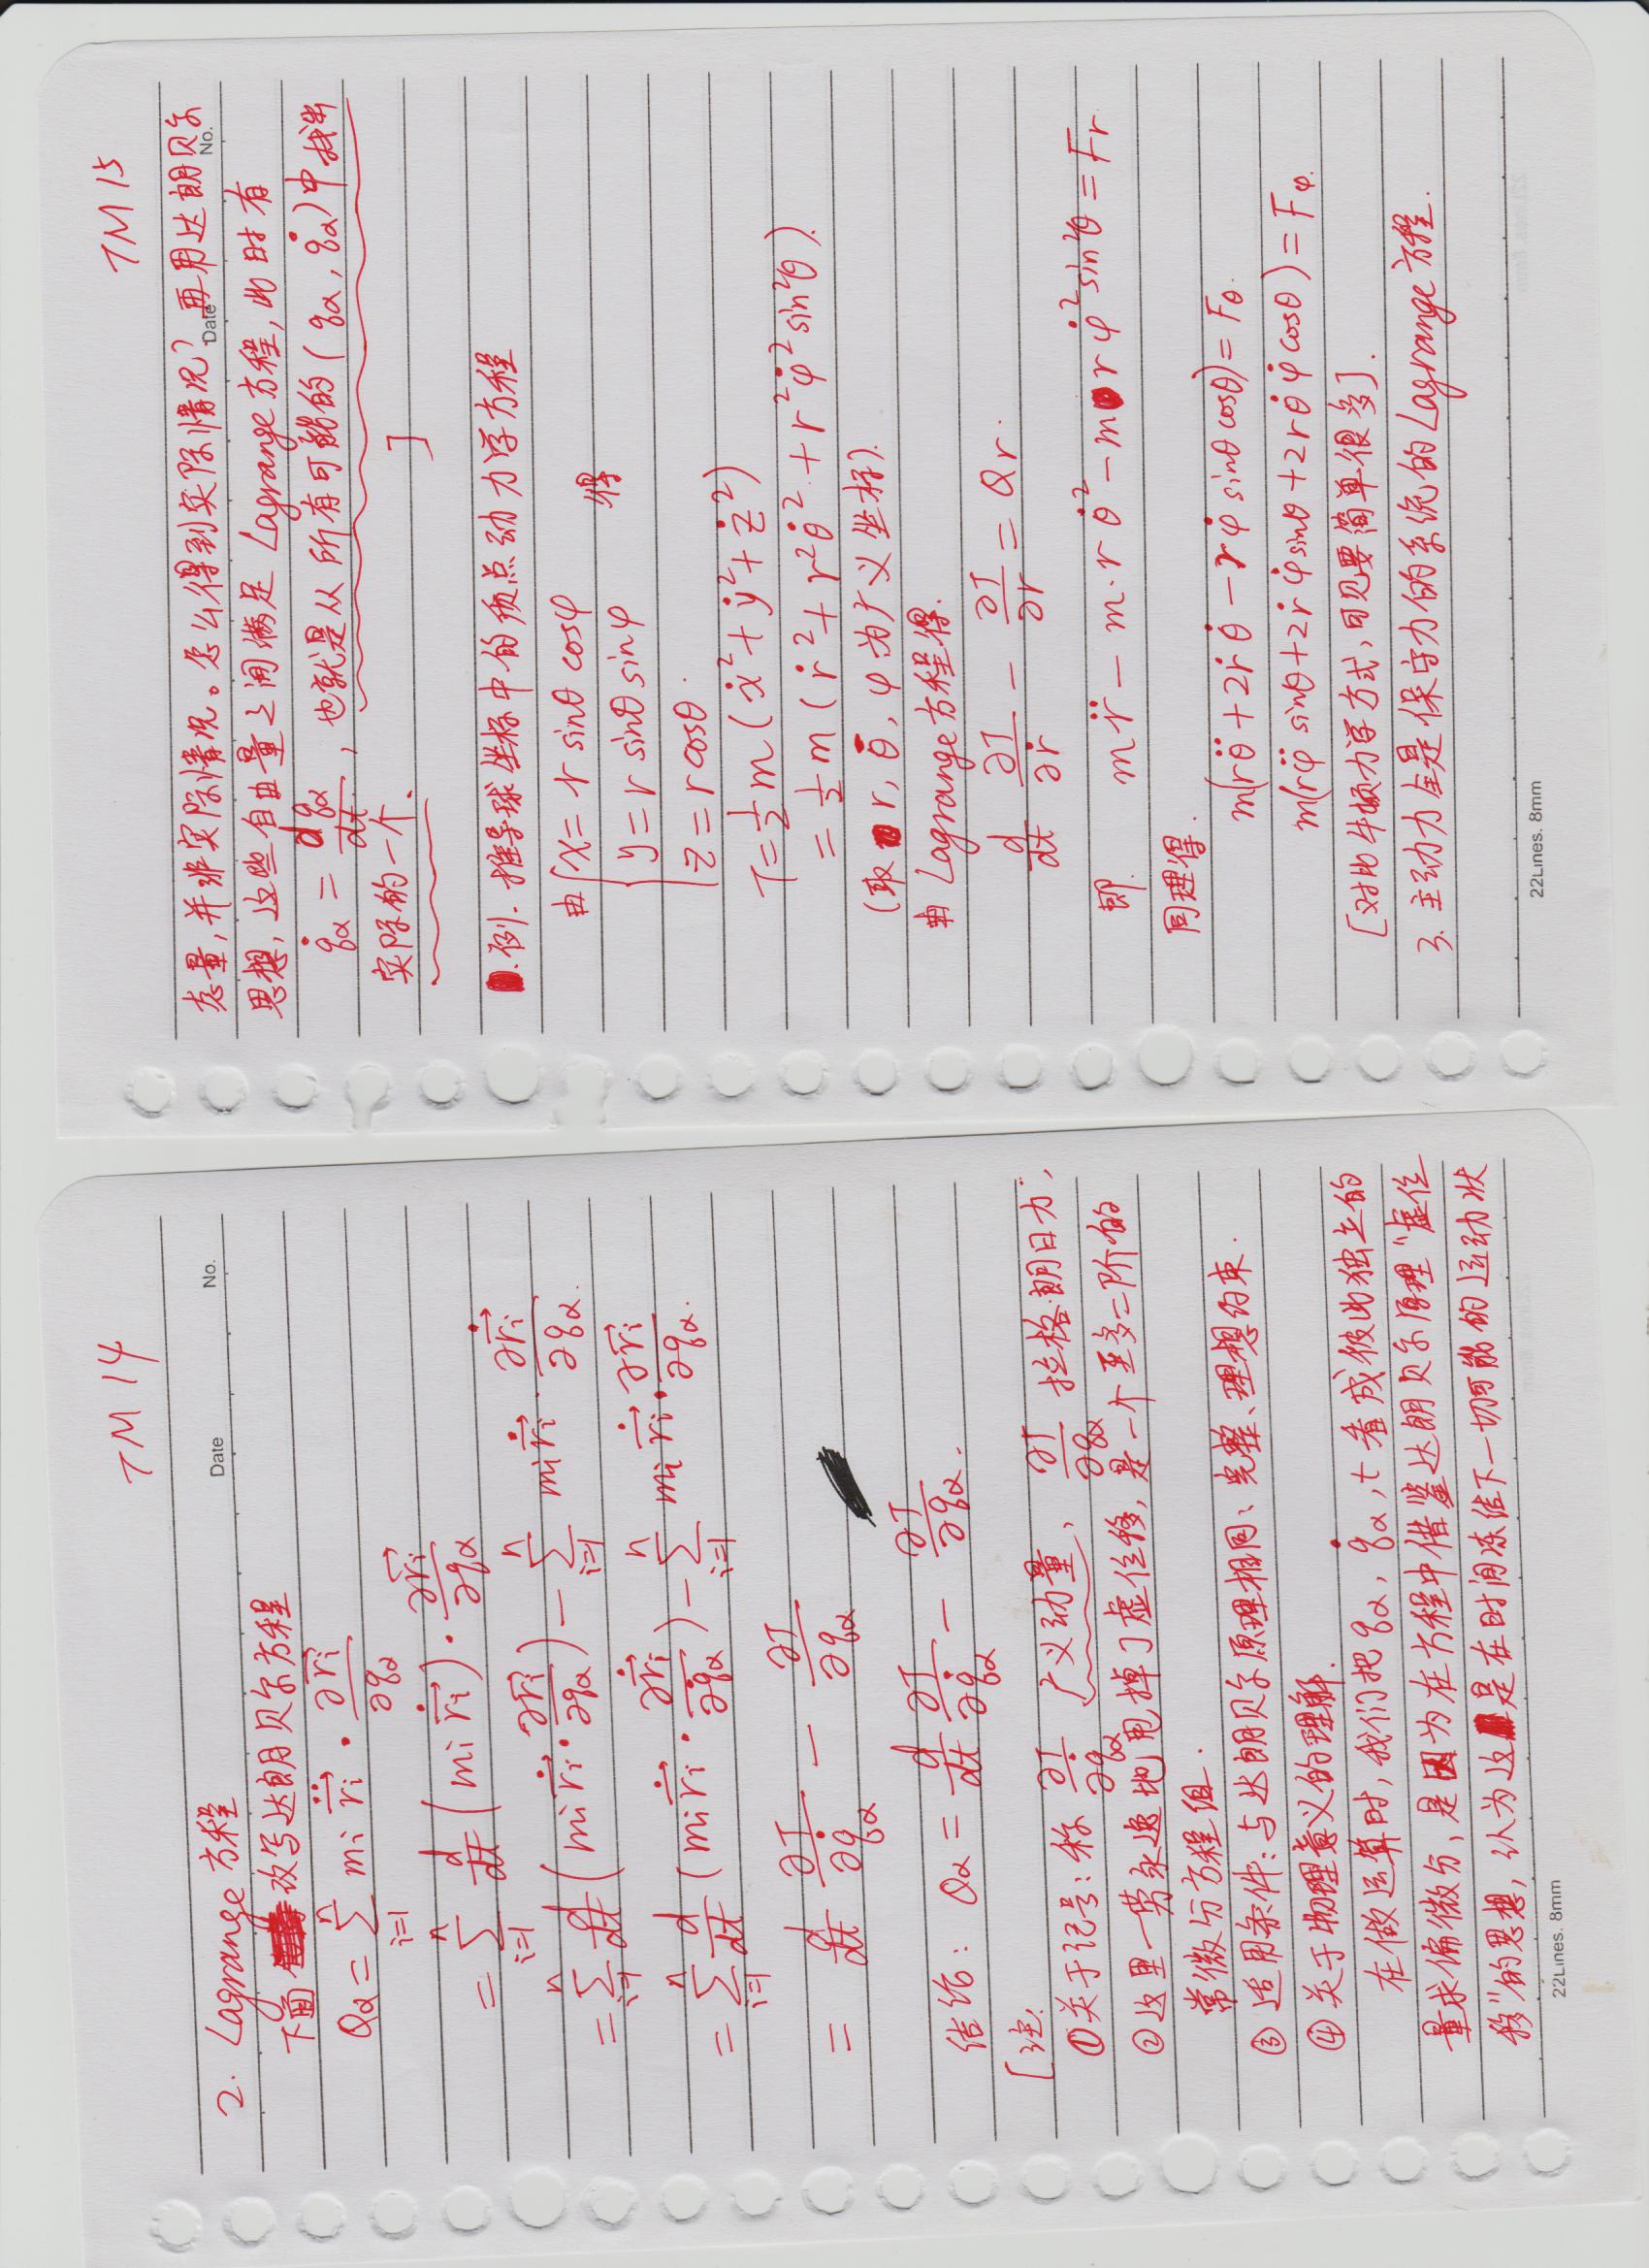 TM 14
Date No.
2. Lagrange 方程
下面 改写达朗贝尔方程
Qα = Σ_{i=1}^{n} mi r⃗̈i · ∂r⃗i/∂qα
= Σ_{i=1}^{n} d/dt (mi r⃗̇i) · ∂r⃗i/∂qα
= Σ_{i=1}^{n} d/dt (mi r⃗̇i · ∂r⃗i/∂qα) − Σ_{i=1}^{n} mi r⃗̇i · ∂r⃗̇i/∂qα.
= Σ_{i=1}^{n} d/dt (mi r⃗̇i · ∂r⃗̇i/∂q̇α) − Σ_{i=1}^{n} mi r⃗̇i · ∂r⃗̇i/∂qα.
= d/dt ∂T/∂q̇α − ∂T/∂qα
结论: Qα = d/dt ∂T/∂q̇α − ∂T/∂qα.
[注.
①关于记号: 称 ∂T/∂q̇α 广义动量, ∂T/∂qα 拉格朗日力;
②这里一劳永逸地甩掉了虚位移, 是一个至多二阶的
常微分方程组.
③ 适用条件: 与达朗贝尔原理相同: 完整、理想约束.
④ 关于物理意义的理解.
在做运算时, 我们把 qα, q̇α, t 看成彼此独立的
量求偏微分, 是因为在方程中借鉴达朗贝尔原理"虚位
移"的思想, 认为这 是在时间冻结下一切可能的运动状
22Lines. 8mm
TM 15
Date No.
态量, 并非实际情况。怎么得到实际情况? 再用达朗贝尔
思想, 这些自由量之间满足 Lagrange 方程, 此时有
q̇α = dqα/dt, 也就是从所有可能的 (qα, q̇α) 中找出
实际的一个. ]
例. 推导球坐标中的质点动力学方程
由 { x = r sinθ cosφ
y = r sinθ sinφ 得
z = r cosθ.
T = ½ m (ẋ² + ẏ² + ż²)
= ½ m (ṙ² + r²θ̇² + r²φ̇² sin²θ).
(取 r, θ, φ 为广义坐标).
由 Lagrange 方程得.
d/dt ∂T/∂ṙ − ∂T/∂r = Qr.
即. m r̈ − m·r θ̇² − m r φ̇² sin²θ = Fr
同理得.
m(rθ̈ + 2ṙ θ̇ − r φ̇ sinθ cosθ) = Fθ.
m(rφ̈ sinθ + 2ṙ φ̇ sinθ + 2r θ̇ φ̇ cosθ) = Fφ.
[对比牛顿力学方式, 可见要简单很多].
3. 主动力全是保守力的系统的 Lagrange 方程.
22Lines. 8mm